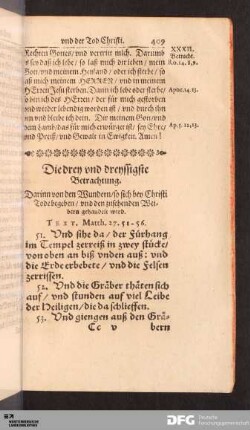 vnd der Tod Christi. 409
XXXII.
Betracht.
Rechten Gottes / vnd vertritt mich. Darumb
so sey das ich lebe / so laß mich dir leben / mein
Gott / vnd meinem Heyland / oder ich sterbe / so
laß mich meinem HERREN / vnd in meinem
HErrn Jesu sterben. Dann ich lebe oder sterbe /
so bin ich des HErrn / der für mich gestorben
vnd wieder lebendig worden ist / vnd durch den
vnd die bleibe ich dem. Dir meinem Gott / vnd
dem Lamb / das für mich erwürget ist / sey Ehre /
vnd Preiß / vnd Gewalt in Ewigkeit. Amen!
Die drey vnd dreyssigste
Betrachtung.
Darinn von den Wundern / so sich bey Christi
Todt begeben / vnd den zusehenden Wei-
bern gehandelt wird.
TEXT. Matth. 27. 51-56.
51. Vnd sihe da / der Fürhang
im Tempel zerreiß in zwey stücke /
von oben an biß vnden auß: vnd
die Erde erbebete / vnd die Felsen
zerrissen.
52. Vnd die Gräber thäten sich
auf / vnd stunden auf viel Leibe
der Heiligen / die da schlieffen.
53. Vnd giengen auß den Grä-
Cc v bern
DFG Deutsche
Forschungsgemeinschaft